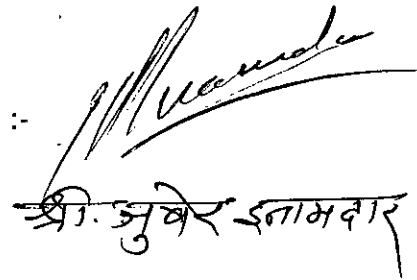 :-
श्री. जुबेर इनामदार